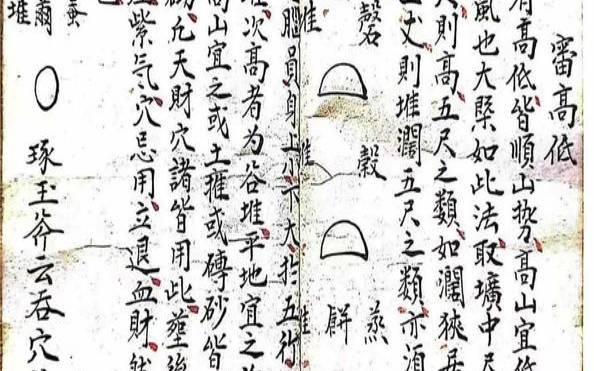 審高低
有高低皆順山勢高山宜低
風也大槩如此法取壙中尺
尺則高五尺之類如濶狹
丈則堆濶五尺之類亦須
磬 穀 蒸餅
堆 堆 堆
腦員身上小下大於五行
堆次高者為谷堆平地宜之
高山宜之或土壅或磚砂皆
初允天財穴諸皆用此塟後
紫气穴忌用立退血財
琢玉斧云吞穴
蚕繭
堆